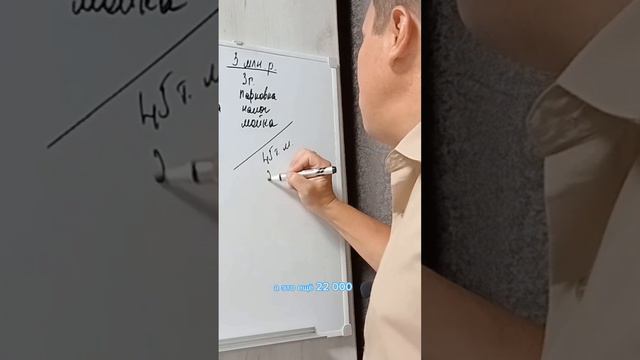 3 млн р.
3г.
Парковка
налог
мойка
45 т. м.
2
а это ещё 22 000